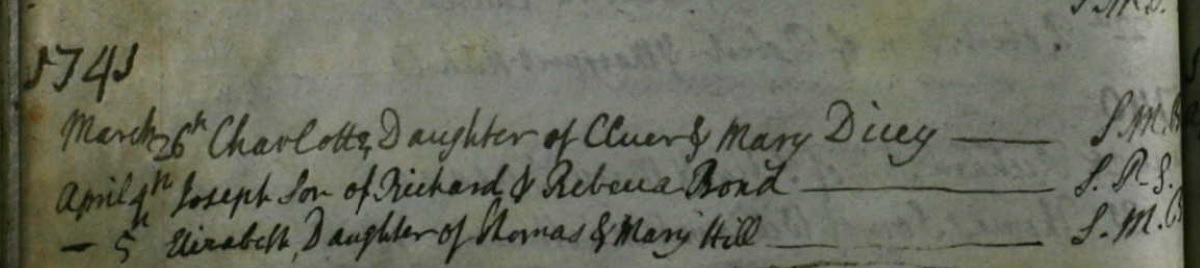 1741
March 26th Charlotte, Daughter of Cluer & Mary Dicey — S.M.
April 4th Joseph Son of Richard & Rebecca Bond — S. P. S.
— 5th Elizabeth, Daughter of Thomas & Mary Hill — S. M.